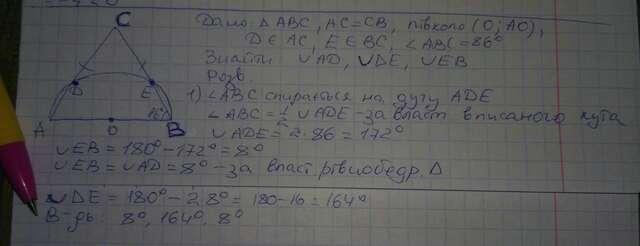 Дано: △ ABC, AC=CB, півколо (O; AO),
D ∈ AC, E ∈ BC, ∠ABC = 86°
Знайти ∪AD, ∪DE, ∪EB
Розв.
1) ∠ABC спирається на дугу ADE
∠ABC = 1/2 ∪ADE - за власт вписаного кута
∪ADE = 2·86 = 172°
∪EB = 180° - 172° = 8°
∪EB = ∪AD = 8° - за власт. рівнобедр. △
∪DE = 180° - 2·8° = 180 - 16 = 164°
В-дь: 8°, 164°, 8°
C
D
E
86°
A
O
B